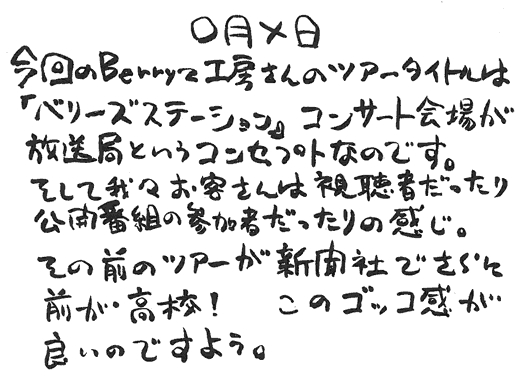 〇月×日
今回のBerryz工房さんのツアータイトルは
「ベリーズステーション」コンサート会場が
放送局というコンセプトなのです。
そして我々お客さんは視聴者だったり
公開番組の参加者だったりの感じ。
その前のツアーが新聞社でさらに
前が高校! このゴッコ感が
良いのですよう。